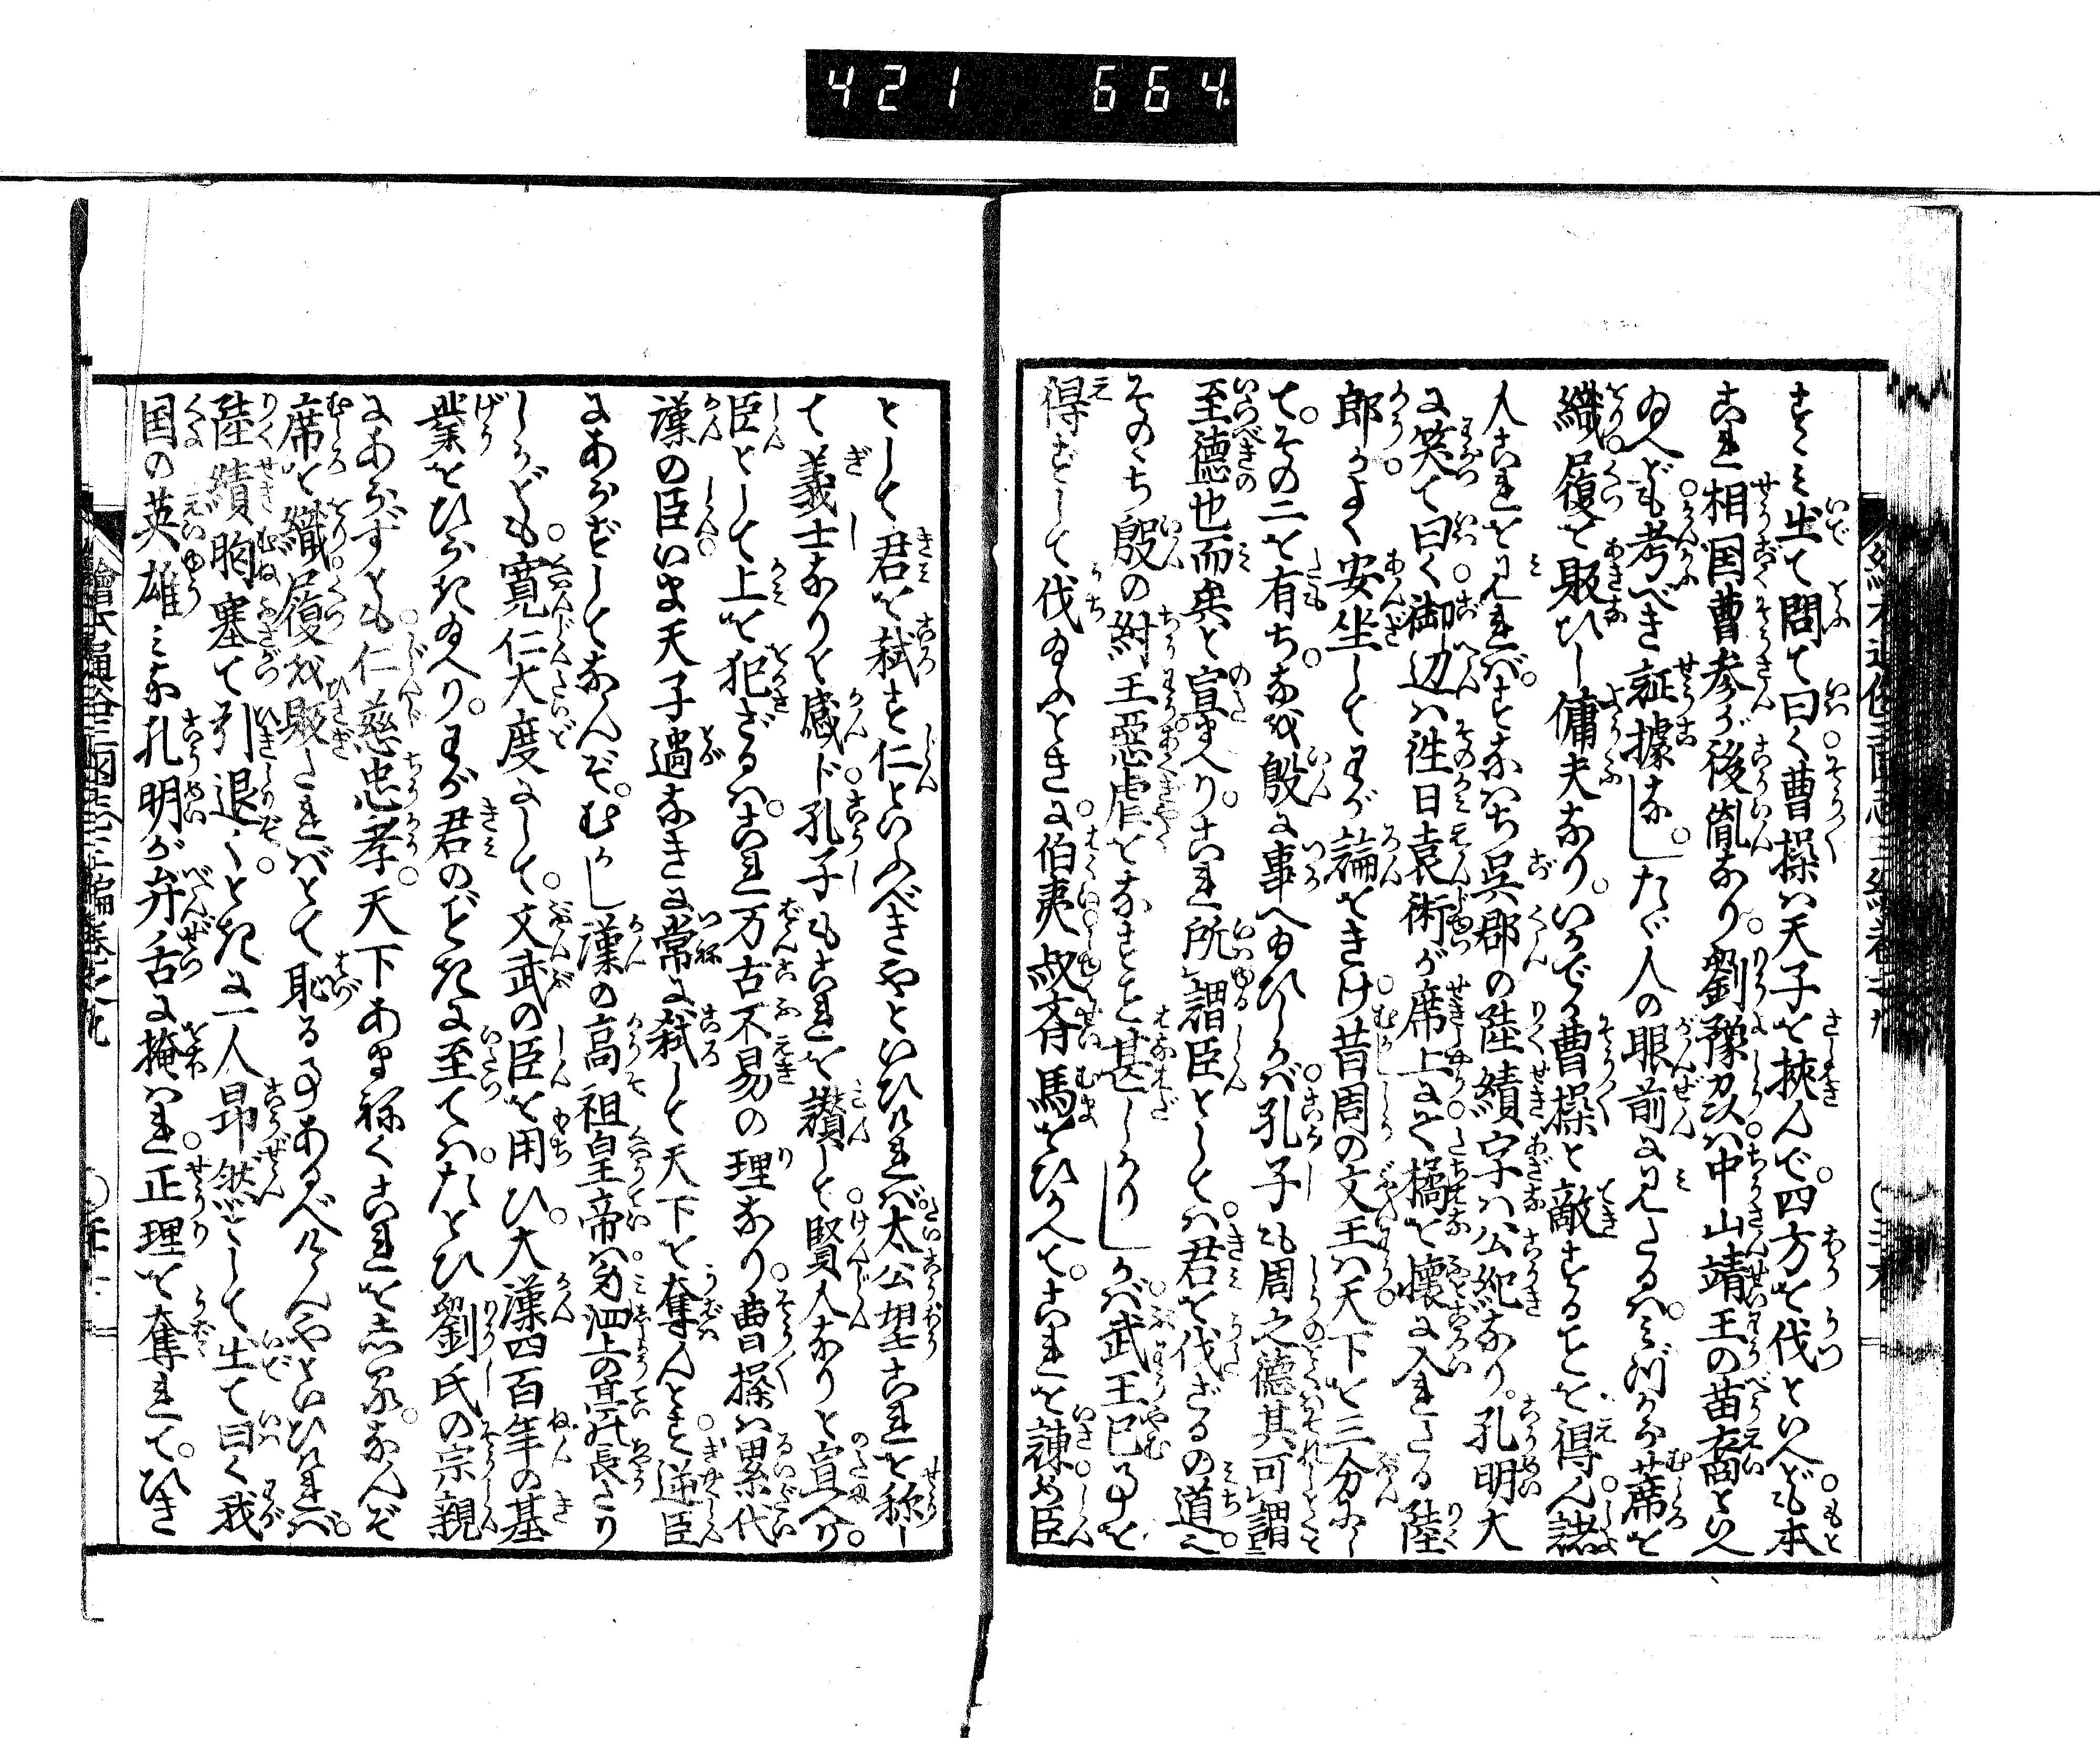 421 664
すゝみ出て問て曰く曹操ハ天子を挾んで四方を伐といへども本
これ相国曹参が後胤なり劉豫州ハ中山靖王の苗裔といへ
ゐへども考べき証據なしたゞ人の眼前に見たるハみづから蓆を
織履を販ひし傭夫なりいかでか曹操と敵することを得ん諸
人これを見れバすなハち呉郡の陸績字ハ公紀なり孔明大
に笑て曰く御辺ハ往日袁術が席上にて橘を懐に入れたる陸
郎かよく安坐してわが論をきけ昔周の文王ハ天下を三分にし
てその二を有ちなを殷に事へ給ひしかバ孔子も周之德其可謂
至德也而矣と宣へりこれ所謂臣としてハ君を伐ざるの道也
そのゝち殷の紂王惡虐をなすこと甚しかりしかバ武王已事を
得ずして伐給ふときに伯夷叔斉馬をひかへてこれを諌め臣
として君を弑す仁といふべきやといひけれバ太公望これを称し
て義士なりと感ド孔子もこれを讃して賢人なりと宣へり
臣として上を犯ざるハこれ万古不易の理なり曹操ハ累代
漢の臣いま天子過なきに常に弑して天下を奪んとす逆臣
にあらずしてなんぞむかし漢の高祖皇帝ハ身泗上の亭長たり
しかども寛仁大度にして文武の臣を用ひ大漢四百年の基
業をひらき給へりわが君のごときに至てハたとひ劉氏の宗親
にあらずとも仁慈忠孝天下あまねくこれをしる なんぞ
席を織履を販たれバとて恥る事あるべけんやといひけれバ
陸績胸塞て引退くときに一人昂然として出て曰く我
国の英雄みな孔明が弁舌に掩ハれ正理を奪れてひき